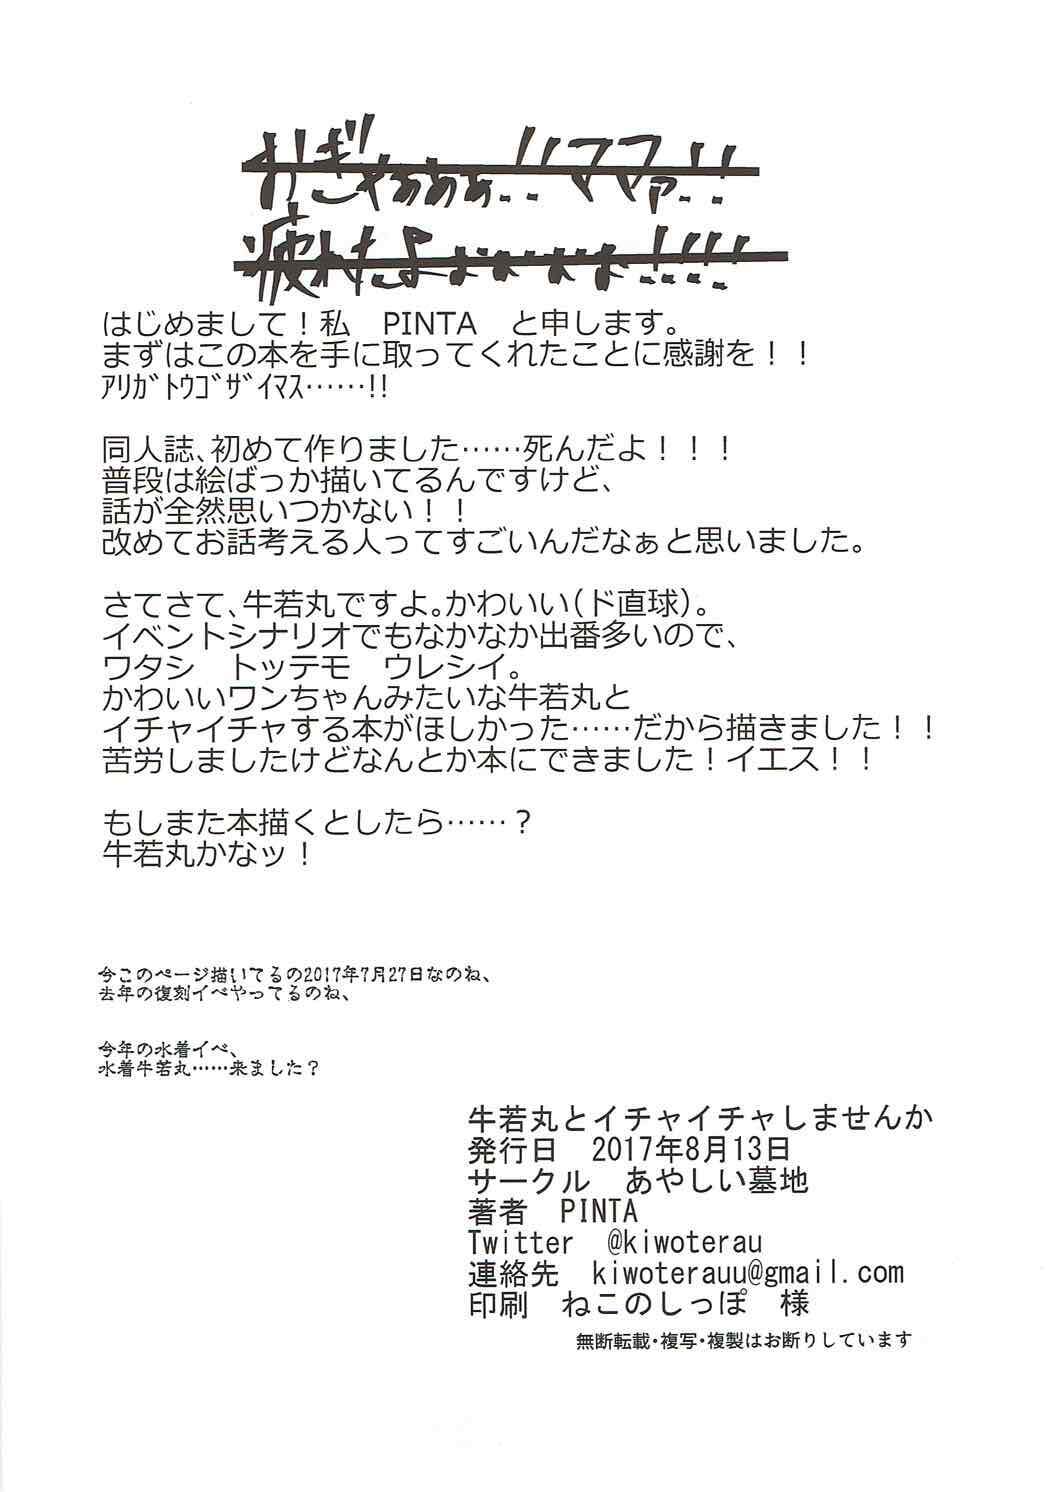 おぎゃあああぁ!!ママァ!!
疲れたよぉぉぉぉ!!!!
はじめまして！私　PINTA　と申します。
まずはこの本を手に取ってくれたことに感謝を！！
ｱﾘｶﾞﾄｳｺﾞｻﾞｲﾏｽ……!!
同人誌、初めて作りました……死んだよ！！！
普段は絵ばっか描いてるんですけど、
話が全然思いつかない！！
改めてお話考える人ってすごいんだなぁと思いました。
さてさて、牛若丸ですよ。かわいい（ド直球）。
イベントシナリオでもなかなか出番多いので、
ワタシ　トッテモ　ウレシイ。
かわいいワンちゃんみたいな牛若丸と
イチャイチャする本がほしかった……だから描きました！！
苦労しましたけどなんとか本にできました！イエス！！
もしまた本描くとしたら……？
牛若丸かなッ！
今このページ描いてるの2017年7月27日なのね、
去年の復刻イベやってるのね、
今年の水着イベ、
水着牛若丸……来ました？
牛若丸とイチャイチャしませんか
発行日　2017年8月13日
サークル　あやしい墓地
著者　PINTA
Twitter　@kiwoterau
連絡先　kiwoterauu@gmail.com
印刷　ねこのしっぽ　様
無断転載・複写・複製はお断りしています